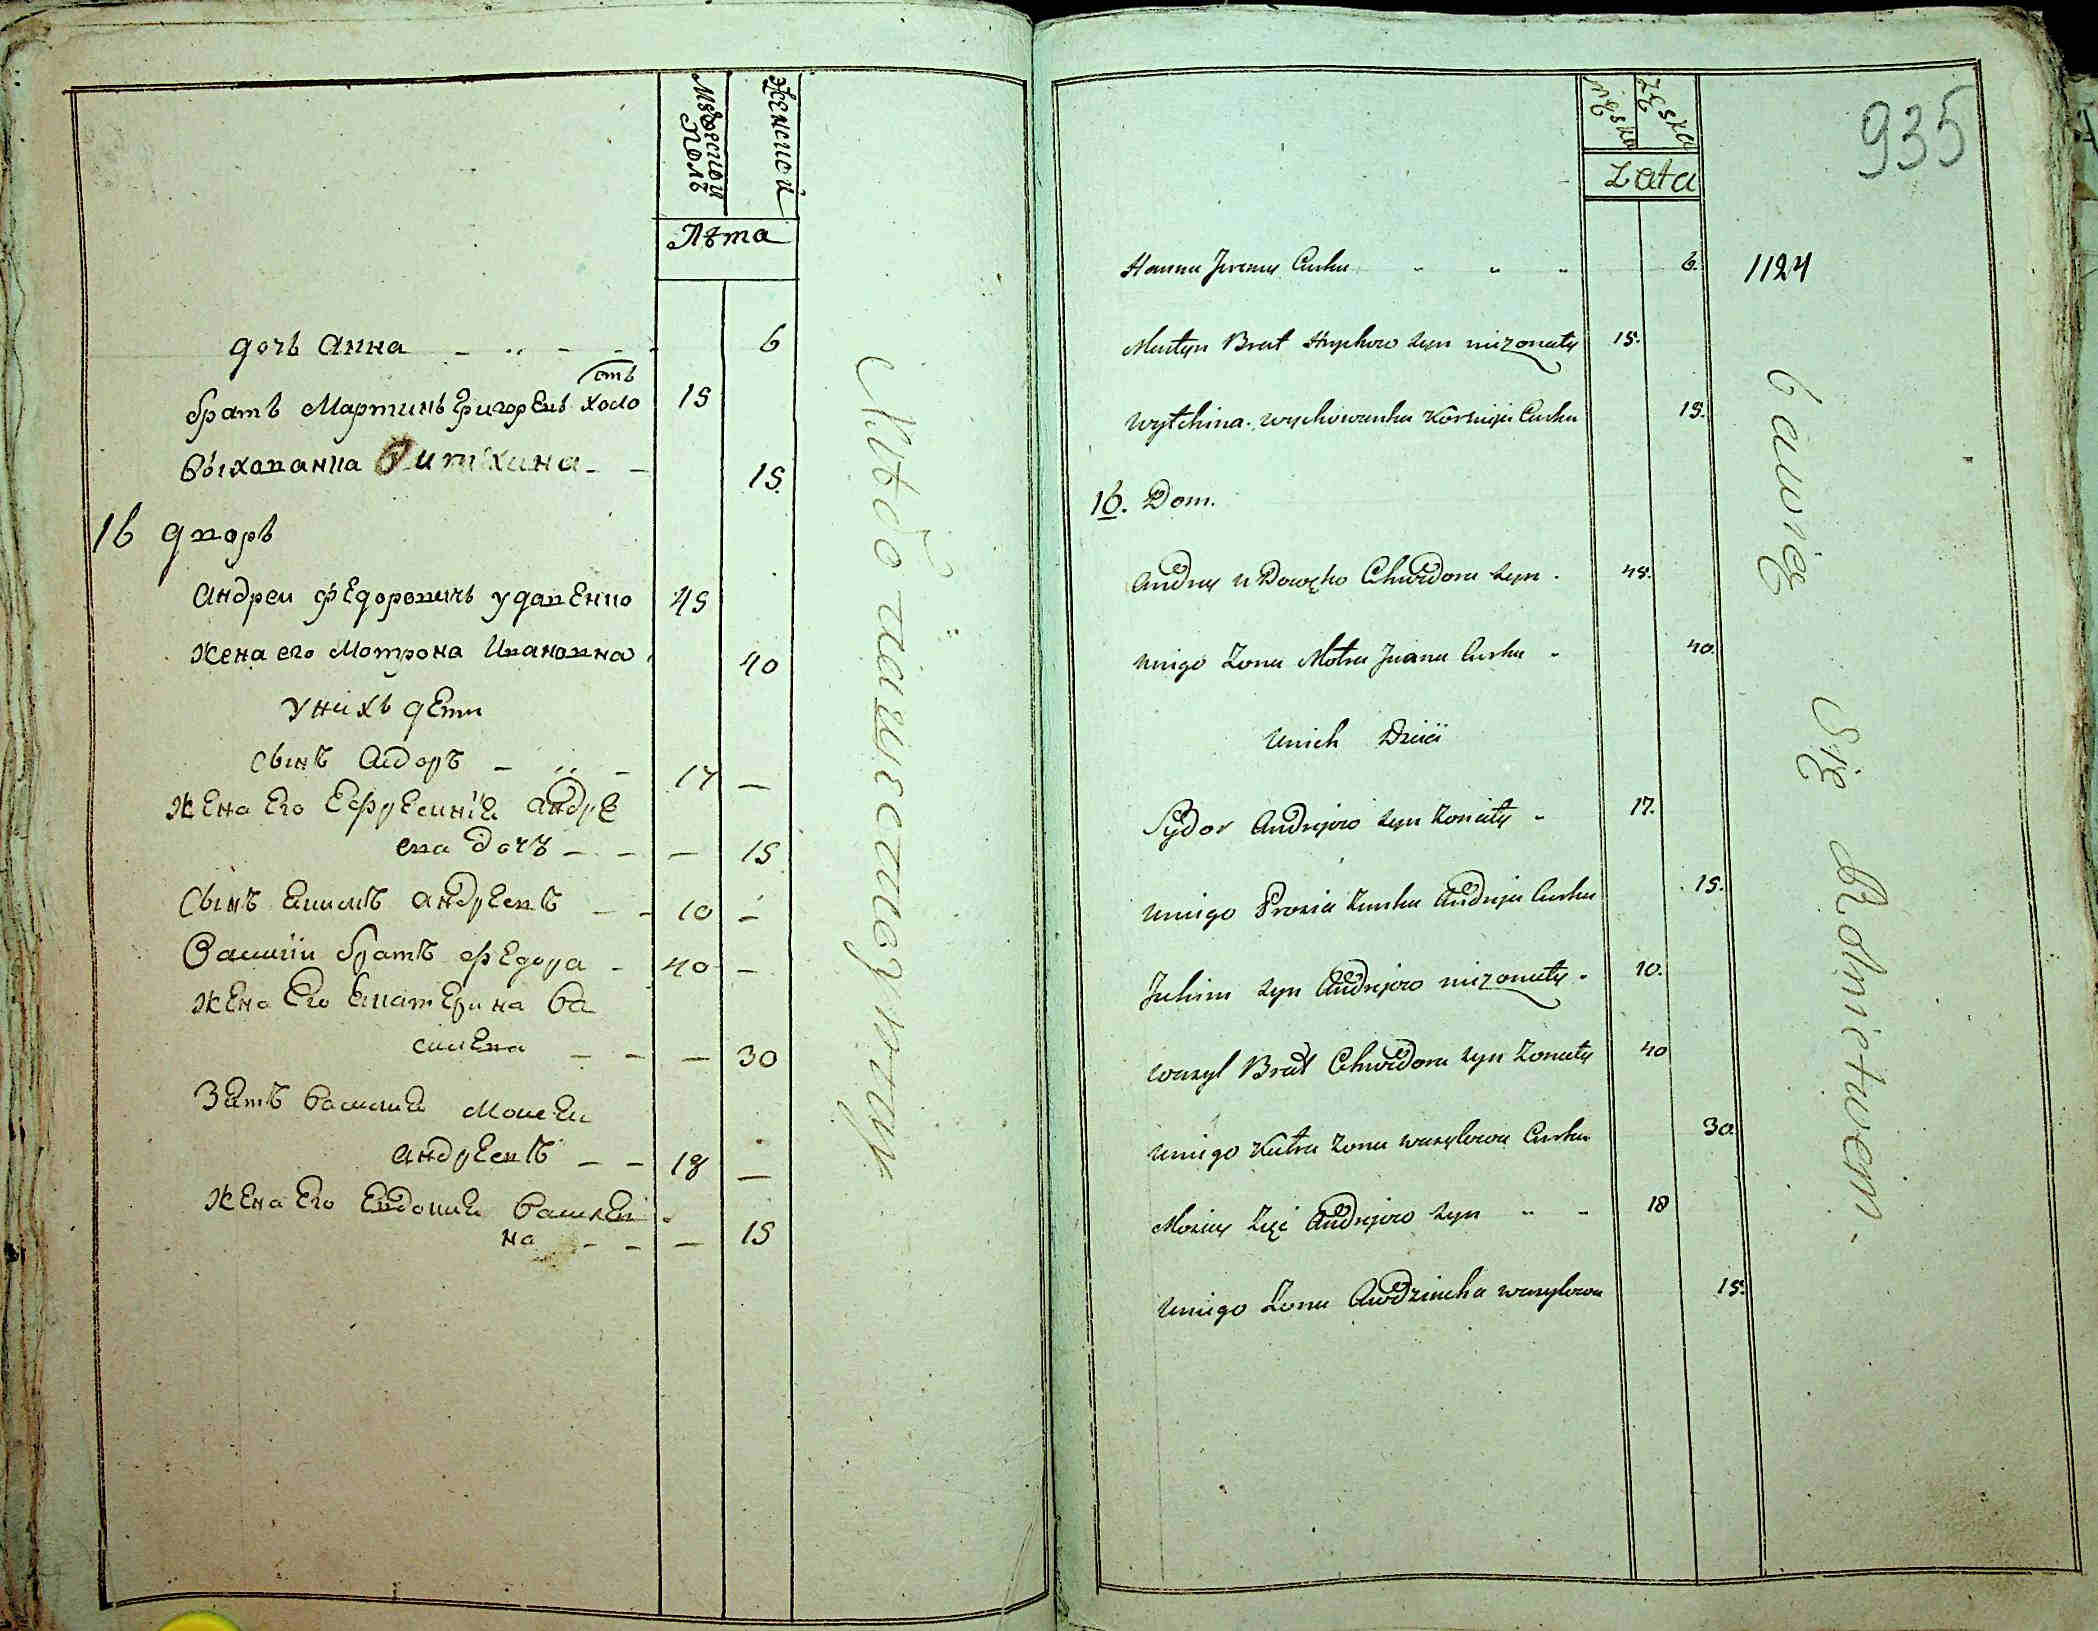 Мужеской Полъ
Женской
Лѣта
дочь Анна 6
братъ Мартинъ Григорьевъ холостъ 15
выхованка 15.
16 дворъ
Андреи Федоровичъ удовенко 45
жена его Мотрона Ивановна 40
У нихъ дети
сынъ Сидоръ 17 —
жена Его Андре
ева дочъ — 15
Сынъ Андреевъ 10 —
Василии братъ Федора 40 —
жена Его Екатерина Ва
силева — 30
Зять Василия Мосеи
Андреевъ 18 —
жена Его Евдокия Василеи
на — 15
Męska
Żęska
Lata
935
Hanna Jeremy Curka 6. 1124
Martyn Brat Hryhow syn nieżonaty 15.
Wytchina wychowanka Kornija Curka 15.
16. Dom.
Andrey Chwedora syn 45.
Uniego Żona Motra Jwana Curka 40.
Unich Dzieci
Sydor Andrejow syn żonaty 17.
Uniego Prosia Żonka Andreja Curka 15.
Juhim syn Andrejow nieżonaty 10.
Wasyl Brat Chwedora syn żonaty 40
Uniego Katra Żona wasylowa Curka 30
Mosiey Zięć Andrejow syn 18
Uniego Żona Awdziucha wasylowa 15.
bawię Się Rolnictwem.